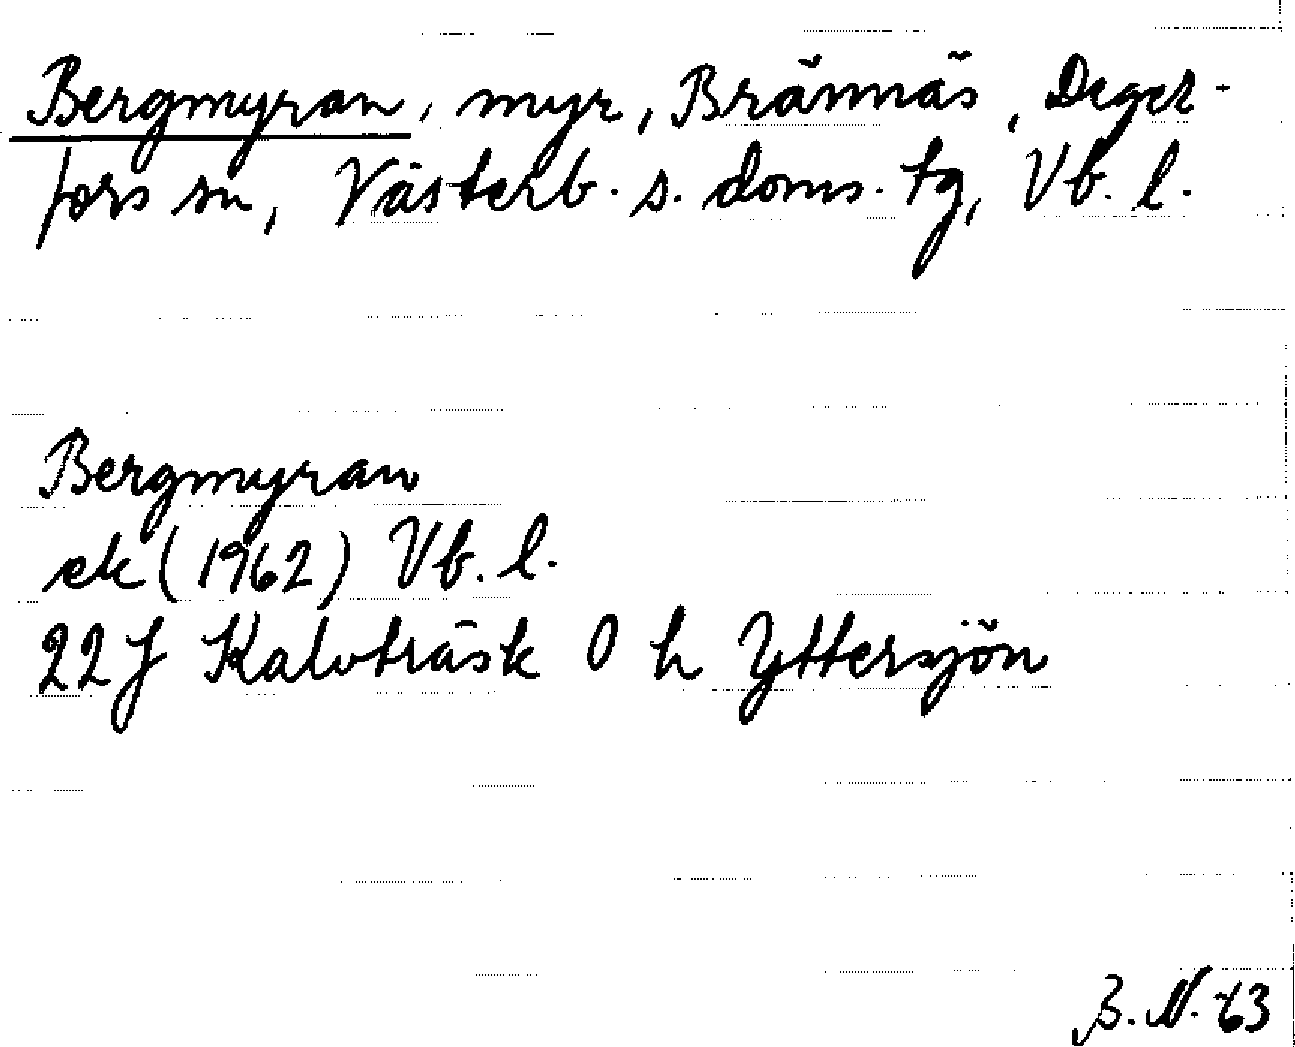 Bergmyran, myr, Brännäs, Deger-
fors sn, Västerb. s. doms. tg, Vb. l.
Bergmyran
ek (1962) Vb. l.
22 J Kalvträsk 0 h Yttersjön
B. N. 63